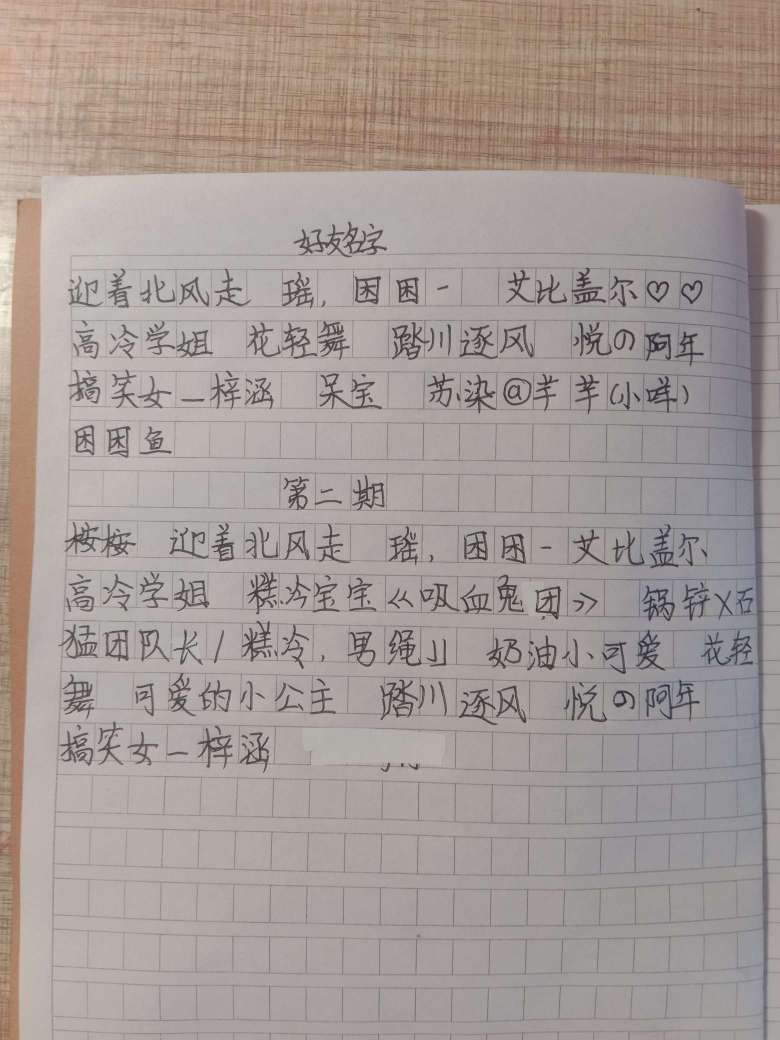 好友名字
迎着北风走 瑶，困困- 艾比盖尔♡♡
高冷学姐 花轻舞 踏川逐风 悦の阿年
搞笑女—梓涵 呆宝 苏染@芊芊(小咩)
困困鱼
第二期
桉桉 迎着北风走 瑶，困困- 艾比盖尔
高冷学姐 糕冷宝宝《吸血鬼团》 锅锌X石
猛团队长/糕冷，男绳」」 奶油小可爱 花轻
舞 可爱的小公主 踏川逐风 悦の阿年
搞笑女—梓涵